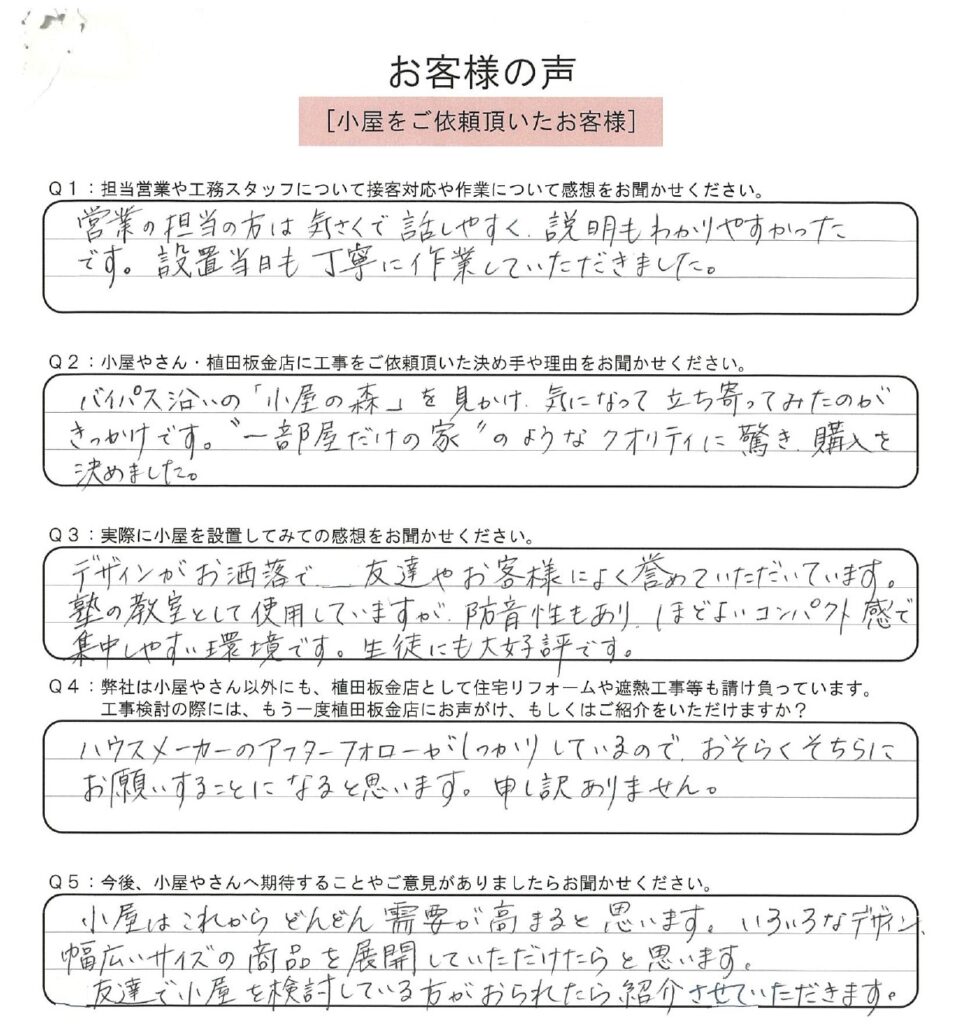 お客様の声
[小屋をご依頼頂いたお客様]
Q1：担当営業や工務スタッフについて接客対応や作業について感想をお聞かせください。
営業の担当の方は気さくで話しやすく、説明もわかりやすかった
です。設置当日も丁寧に作業していただきました。
Q2：小屋やさん・植田板金店に工事をご依頼頂いた決め手や理由をお聞かせください。
バイパス沿いの「小屋の森」を見かけ、気になって立ち寄ってみたのが
きっかけです。"一部屋だけの家"のようなクオリティに驚き、購入を
決めました。
Q3：実際に小屋を設置してみての感想をお聞かせください。
デザインがお洒落で、友達やお客様によく誉めていただいています。
塾の教室として使用していますが、防音性もあり、ほどよいコンパクト感で
集中しやすい環境です。生徒にも大好評です。
Q4：弊社は小屋やさん以外にも、植田板金店として住宅リフォームや遮熱工事等も請け負っています。
工事検討の際には、もう一度植田板金店にお声がけ、もしくはご紹介をいただけますか？
ハウスメーカーのアフターフォローがしっかりしているので、おそらくそちらに
お願いすることになると思います。申し訳ありません。
Q5：今後、小屋やさんへ期待することやご意見がありましたらお聞かせください。
小屋はこれからどんどん需要が高まると思います。いろいろなデザイン、
幅広いサイズの商品を展開していただけたらと思います。
友達で小屋を検討している方がおられたら紹介させていただきます。